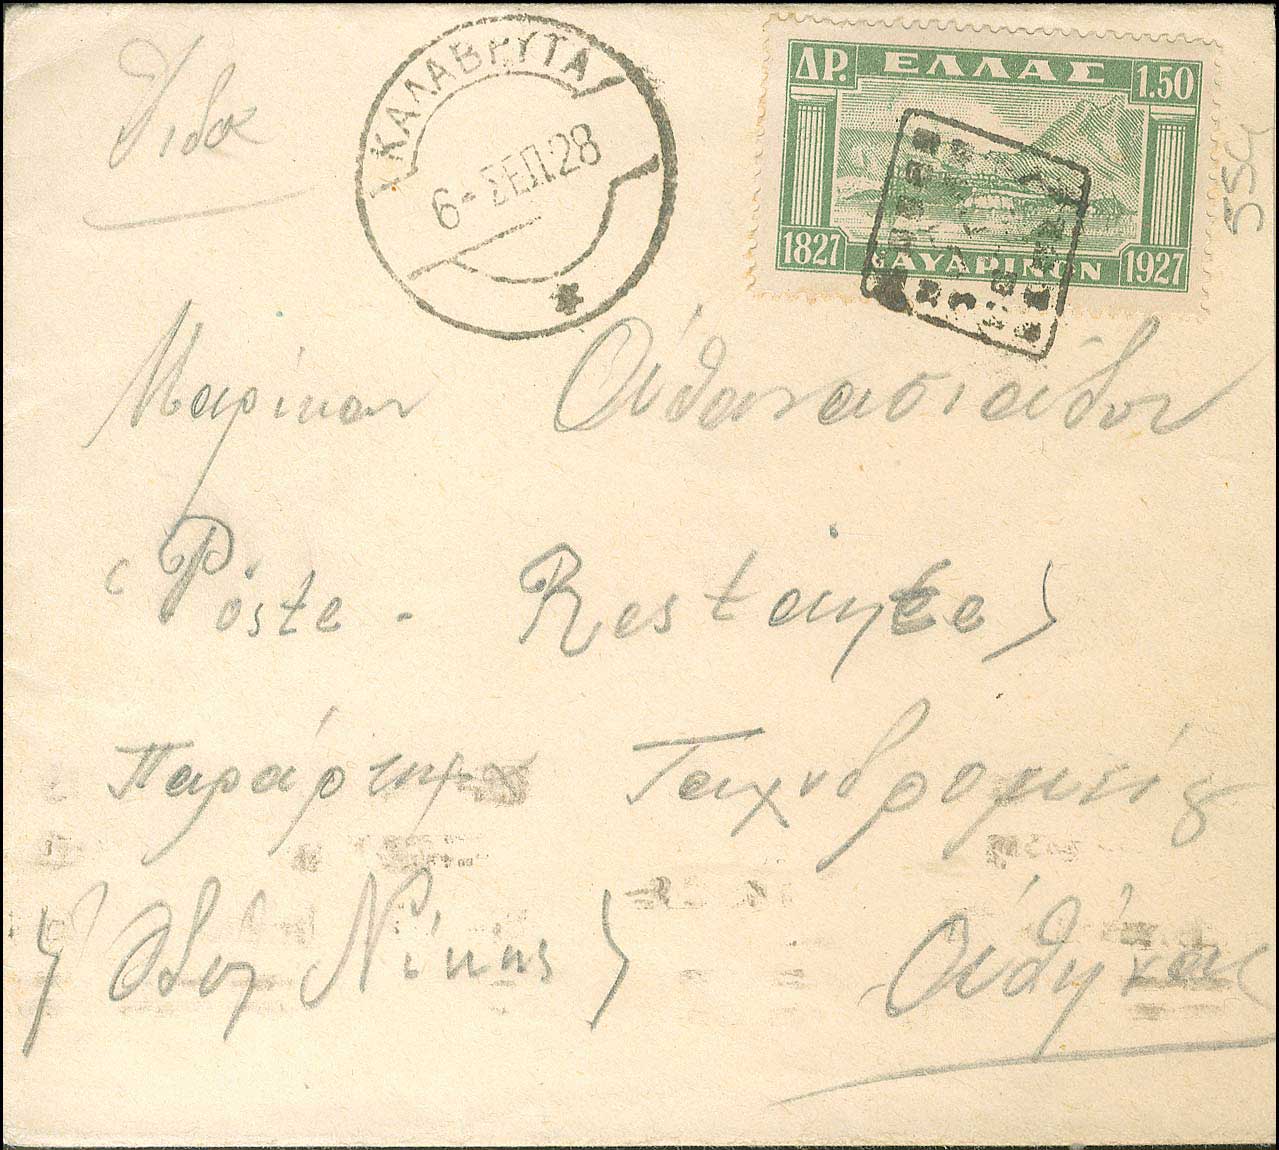 ΚΑΛΑΒΡΥΤΑ
6-ΣΕΠ.28
ΔΡ. ΕΛΛΑΣ 1.50
1827 ΝΑΥΑΡΙΝΟΝ 1927
55α
Μαρίκαν Ἀθανασιάδου
(Poste. Restante)
Παράρτημα Ταχυδρομείου
(Ὁδον Νίκης) Ἀθήνας